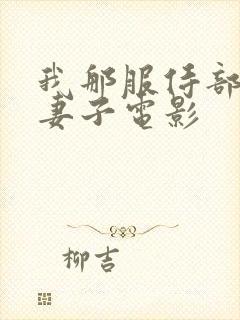 我那服侍部
妻子电影
柳吉